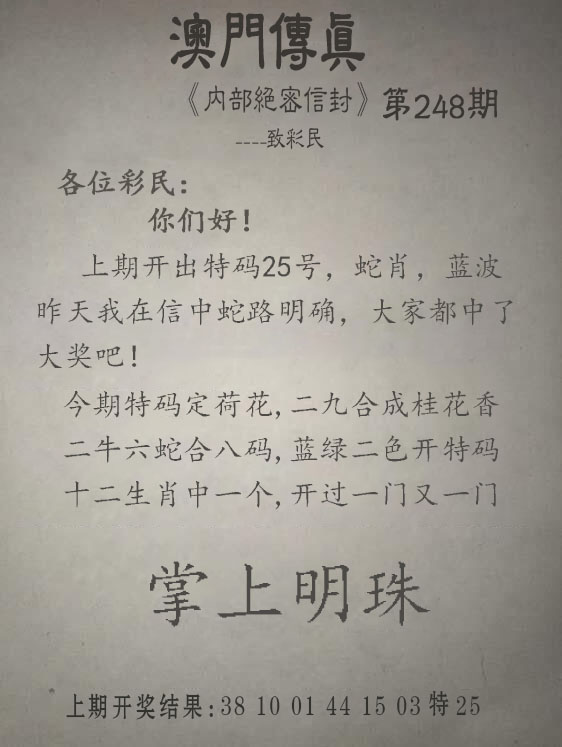 澳門傳真
《内部絕密信封》第248期
----致彩民
各位彩民：
你们好！
上期开出特码25号，蛇肖，蓝波
昨天我在信中蛇路明确，大家都中了
大奖吧！
今期特码定荷花,二九合成桂花香
二牛六蛇合八码,蓝绿二色开特码
十二生肖中一个,开过一门又一门
掌上明珠
上期开奖结果:38 10 01 44 15 03 特 25